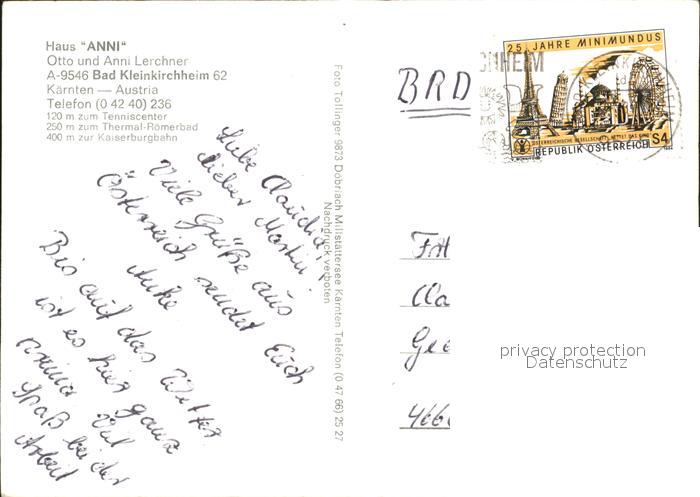 Haus "ANNI"
Otto und Anni Lerchner
A-9546 Bad Kleinkirchheim 62
Kärnten — Austria
Telefon (0 42 40) 236
120 m zum Tenniscenter
250 m zum Thermal-Römerbad
400 m zur Kaiserburgbahn
Liebe Claudia,
lieber Martin!
Viele Grüße aus
Österreich sendet Euch
Anke
Bis auf das Wetter
ist es hier ganz
prima. Viel
Spaß bei der
Arbeit
Foto Tollinger 9873 Döbriach Millstättersee Kärnten Telefon (0 47 66) 25 27
Nachdruck verboten
BRD
25 JAHRE MINIMUNDUS
ÖSTERREICHISCHE GESELLSCHAFT "RETTET DAS KIND"
REPUBLIK ÖSTERREICH S4
CHHEIM
privacy protection
Datenschutz